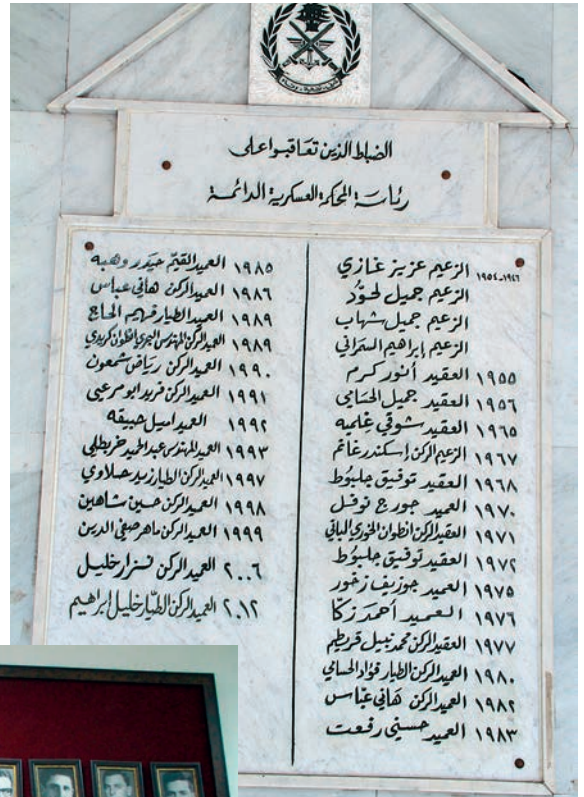 الضباط الذين تعاقبوا على
رئاسة المحكمة العسكرية الدائمة
١٩٤٦-١٩٥٤ الزعيم عزيز غازي
الزعيم جميل لحوّد
الزعيم جميل شهاب
الزعيم إبراهيم السمراني
١٩٥٥ العقيد أنور كرم
١٩٥٦ العقيد جميل الحسامي
١٩٦٥ العقيد شوقي غلميه
١٩٦٧ الزعيم الركن إسكندر غانم
١٩٦٨ العقيد توفيق جلبوُط
١٩٧٠ العميد جورج نوفل
١٩٧١ العقيد الركن انطوان الخوري الباني
١٩٧٢ العقيد توفيق جلبوُط
١٩٧٥ العميد جوزيف زخور
١٩٧٦ العميد أحمد زكّا
١٩٧٧ العقيد الركن محمد نبيل قريطم
١٩٨٠ العميد الركن الطيار فؤاد الحسامي
١٩٨٢ العميد الركن هاني عبّاس
١٩٨٣ العميد حسيني رفعت
١٩٨٥ العميد القيّم حيدر وهبه
١٩٨٦ العميد الركن هاني عباس
١٩٨٩ العميد الطيار فهيم الحاج
١٩٨٩ العميد الركن المهندس البحري انطوان كريدي
١٩٩٠ العميد الركن رياض شمعون
١٩٩١ العميد الركن فريد ابو مرعي
١٩٩٢ العميد اميل حبيقه
١٩٩٣ العميد المهندس عبد الحميد خربطلي
١٩٩٧ العميد الركن الطيار زيد حلاوي
١٩٩٨ العميد الركن حسين شاهين
١٩٩٩ العميد الركن ماهر صفي الدين
٢٠٠٦ العميد الركن نزار خليل
٢٠١٢ العميد الركن الطيّار خليل ابراهيم